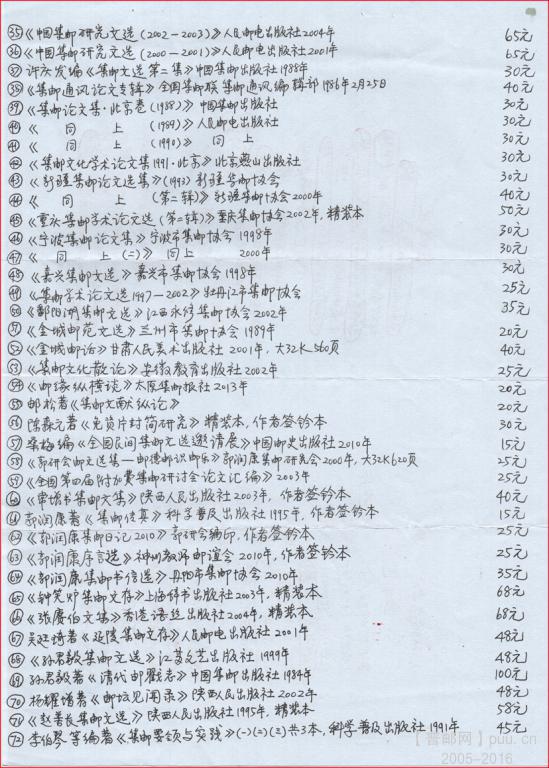 ㉟《中国集邮研究文选(2002-2003)》人民邮电出版社2004年 65元
㊱《中国集邮研究文选(2000-2001)》人民邮电出版社2001年 65元
㊲许庆发编《集邮文选第二集》中国集邮出版社1988年 30元
㊳《集邮通讯论文专辑》全国集邮联集邮通讯编辑部1986年2月25日 40元
㊴《集邮论文集·北京卷(1988)》中国集邮出版社 30元
㊵《 同 上 (1989)》人民邮电出版社 30元
㊶《 同 上 (1990)》 同 上 30元
㊷《集邮文化学术论文集1991·北京》北京燕山出版社 30元
㊸《新疆集邮论文选集》(1993)新疆集邮协会 30元
㊹《 同 上 (第二辑)》新疆集邮协会2000年 40元
㊺《重庆集邮学术论文选(第二辑)》重庆集邮协会2002年,精装本 50元
㊻《宁波集邮论文集》宁波市集邮协会1998年 30元
㊼《 同 上(二)》 同上 2000年 30元
㊽《嘉兴集邮文选》嘉兴市集邮协会1998年 30元
㊾《集邮学术论文选1997-2002》牡丹江市集邮协会 25元
㊿《鄱阳湖集邮文选》江西永修集邮协会2002年 35元
51《金城邮苑文选》兰州市集邮协会1989年 20元
52《金城邮话》甘肃人民美术出版社2001年,大32K560页 40元
53《集邮文化散论》安徽教育出版社2002年 25元
54《邮缘纵横谈》太原集邮报社2013年 20元
55 邮松著《集邮文献纵论》 20元
56 陈森元著《免资片封简研究》精装本,作者签钤本 30元
57 梁梅编《全国民间集邮文选邀请展》中国邮史出版社2010年 15元
58《郭研会邮文选集—邮德邮识邮乐》郭润康集邮研究会2000年,大32K620页 25元
59《全国第四届附加费集邮研讨会论文汇编》2003年 25元
60《审增书集邮文集》陕西人民出版社2003年,作者签钤本 40元
61 郭润康著《集邮传真》科学普及出版社1995年,作者签钤本 15元
62《郭润康集邮日记2010》郭研会编印,作者签钤本 25元
63《郭润康序言选》神州教师邮谊会2010年,作者签钤本 25元
64《郭润康集邮书信选》丹阳市集邮协会2010年 35元
65《钟笑炉集邮文存》上海辞书出版社2003年,精装本 68元
66《张赓伯文集》香港语丝出版社2004年,精装本 68元
67 吴廷琦著《延陵集邮文存》人民邮电出版社2001年 48元
68《孙君毅集邮文选》江苏文艺出版社1999年 48元
69 孙君毅著《清代邮戳志》中国集邮出版社1984年 100元
70 杨耀增著《邮坛见闻录》陕西人民出版社2002年 48元
71《赵善长集邮文选》陕西人民出版社1995年,精装本 58元
72 李伯琴等编著《集邮要领与实践》(一)(二)(三)共3本,科学普及出版社1991年 45元
【普邮网】puu.cn
2005-2016